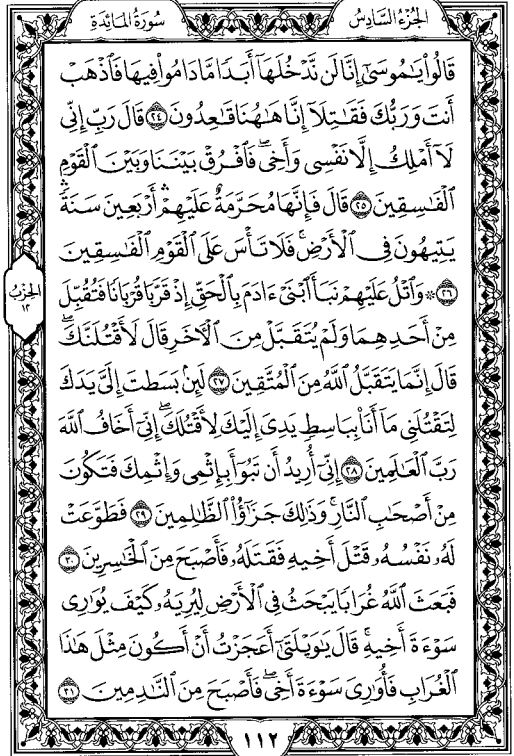 الجزء السادس
سورة المائدة
قَالُواْ يَٰمُوسَىٰٓ إِنَّا لَن نَّدۡخُلَهَآ أَبَدٗا مَّا دَامُواْ فِيهَا فَٱذۡهَبۡ
أَنتَ وَرَبُّكَ فَقَٰتِلَآ إِنَّا هَٰهُنَا قَٰعِدُونَ ٢٤ قَالَ رَبِّ إِنِّي
لَآ أَمۡلِكُ إِلَّا نَفۡسِي وَأَخِيۖ فَٱفۡرُقۡ بَيۡنَنَا وَبَيۡنَ ٱلۡقَوۡمِ
ٱلۡفَٰسِقِينَ ٢٥ قَالَ فَإِنَّهَا مُحَرَّمَةٌ عَلَيۡهِمۡۛ أَرۡبَعِينَ سَنَةٗۛ
يَتِيهُونَ فِي ٱلۡأَرۡضِۚ فَلَا تَأۡسَ عَلَى ٱلۡقَوۡمِ ٱلۡفَٰسِقِينَ
٢٦ ۞ وَٱتۡلُ عَلَيۡهِمۡ نَبَأَ ٱبۡنَيۡ ءَادَمَ بِٱلۡحَقِّ إِذۡ قَرَّبَا قُرۡبَانٗا فَتُقُبِّلَ
مِنۡ أَحَدِهِمَا وَلَمۡ يُتَقَبَّلۡ مِنَ ٱلۡأٓخَرِ قَالَ لَأَقۡتُلَنَّكَۖ
قَالَ إِنَّمَا يَتَقَبَّلُ ٱللَّهُ مِنَ ٱلۡمُتَّقِينَ ٢٧ لَئِنۢ بَسَطتَ إِلَيَّ يَدَكَ
لِتَقۡتُلَنِي مَآ أَنَا۠ بِبَاسِطٖ يَدِيَ إِلَيۡكَ لِأَقۡتُلَكَۖ إِنِّيٓ أَخَافُ ٱللَّهَ
رَبَّ ٱلۡعَٰلَمِينَ ٢٨ إِنِّيٓ أُرِيدُ أَن تَبُوٓأَ بِإِثۡمِي وَإِثۡمِكَ فَتَكُونَ
مِنۡ أَصۡحَٰبِ ٱلنَّارِۚ وَذَٰلِكَ جَزَٰٓؤُاْ ٱلظَّٰلِمِينَ ٢٩ فَطَوَّعَتۡ
لَهُۥ نَفۡسُهُۥ قَتۡلَ أَخِيهِ فَقَتَلَهُۥ فَأَصۡبَحَ مِنَ ٱلۡخَٰسِرِينَ ٣٠
فَبَعَثَ ٱللَّهُ غُرَابٗا يَبۡحَثُ فِي ٱلۡأَرۡضِ لِيُرِيَهُۥ كَيۡفَ يُوَٰرِي
سَوۡءَةَ أَخِيهِۚ قَالَ يَٰوَيۡلَتَىٰٓ أَعَجَزۡتُ أَنۡ أَكُونَ مِثۡلَ هَٰذَا
ٱلۡغُرَابِ فَأُوَٰرِيَ سَوۡءَةَ أَخِيۖ فَأَصۡبَحَ مِنَ ٱلنَّٰدِمِينَ ٣١
الحزب
١٢
١١٢